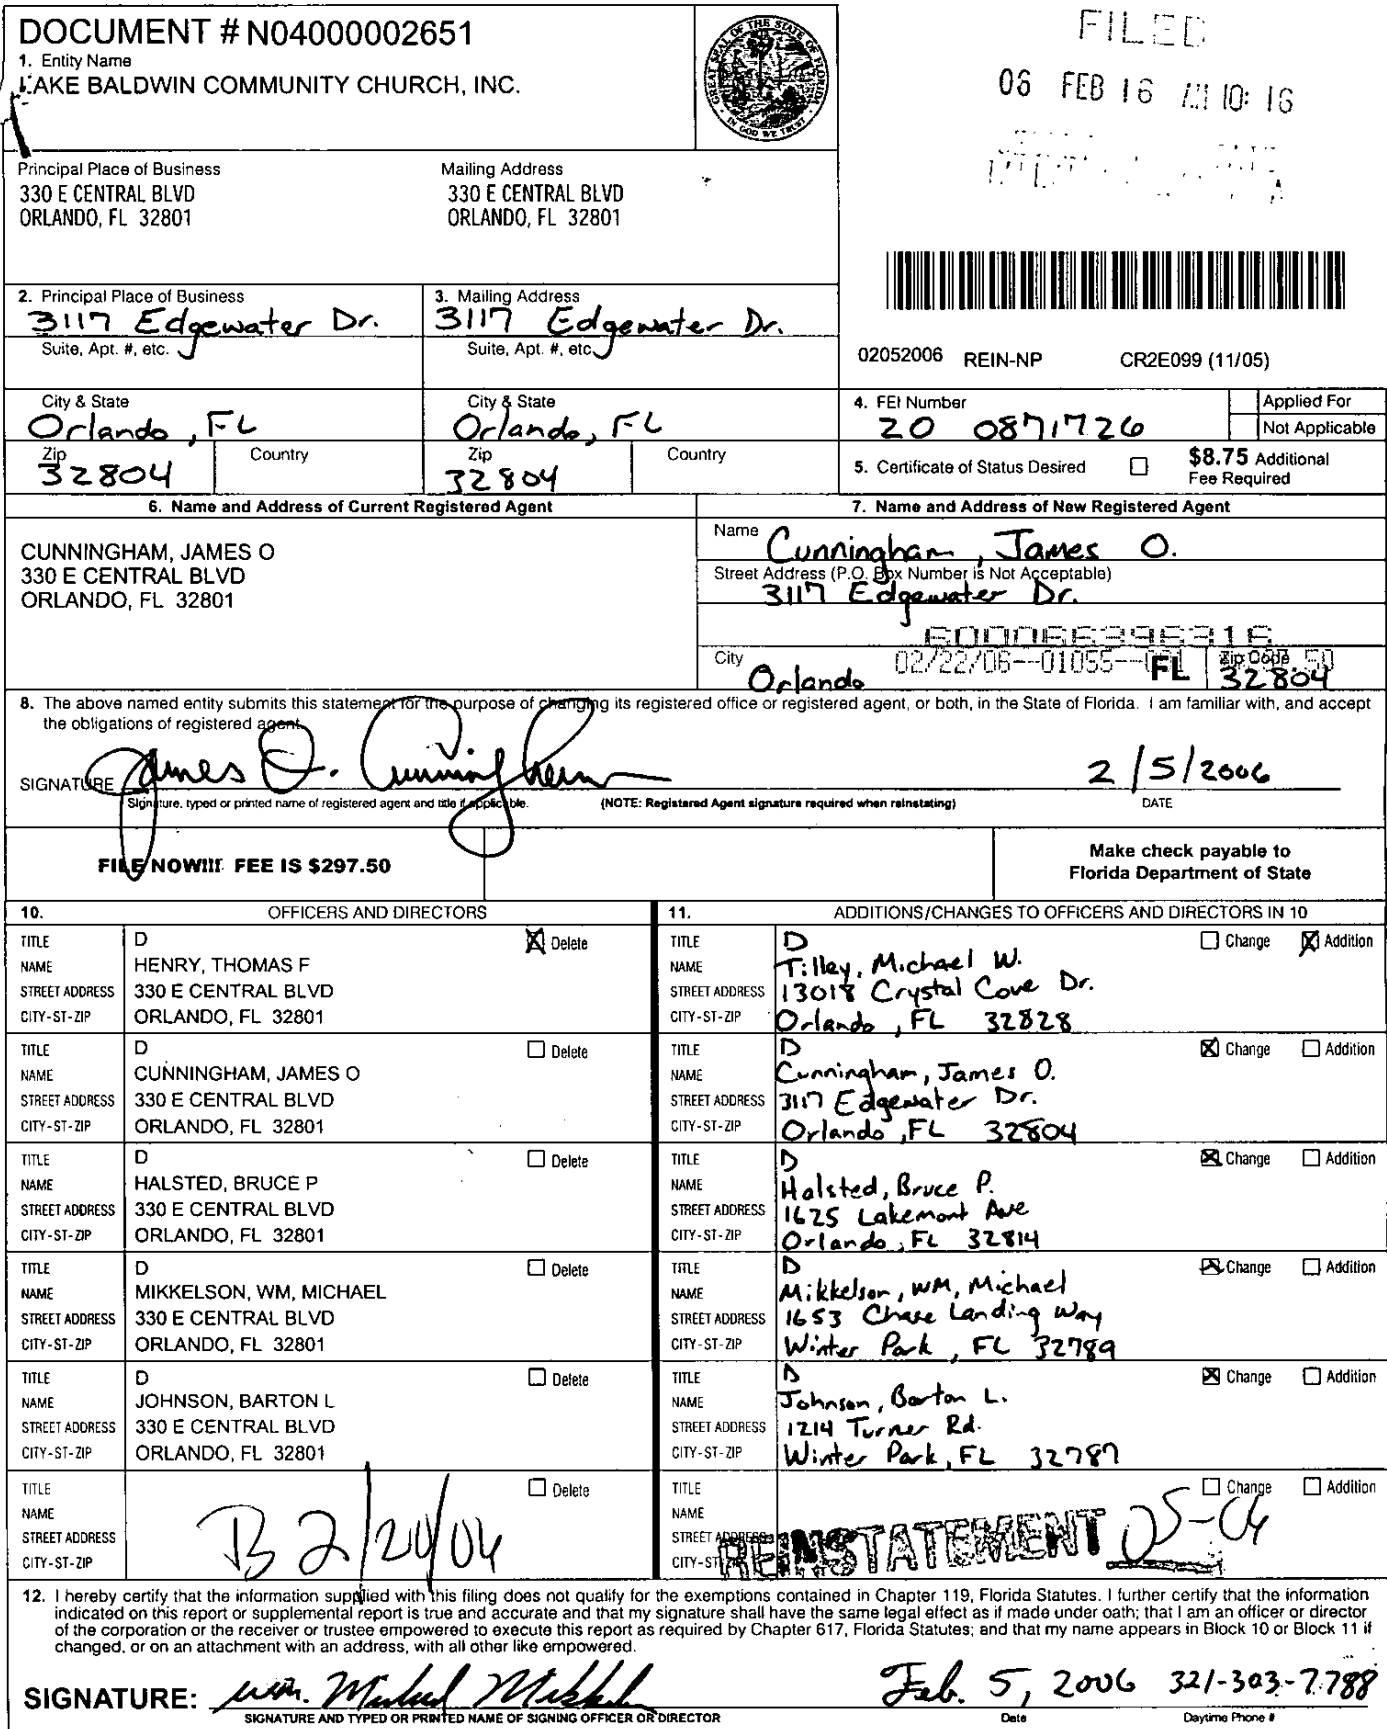 DOCUMENT # N04000002651
1. Entity Name
LAKE BALDWIN COMMUNITY CHURCH, INC.
GREAT SEAL OF THE STATE OF FLORIDA
IN GOD WE TRUST
FILED
06 FEB 16 AM 10: 16
Principal Place of Business
330 E CENTRAL BLVD
ORLANDO, FL 32801
Mailing Address
330 E CENTRAL BLVD
ORLANDO, FL 32801
2. Principal Place of Business
3117 Edgewater Dr.
Suite, Apt. #, etc.
3. Mailing Address
3117 Edgewater Dr.
Suite, Apt. #, etc.
02052006 REIN-NP CR2E099 (11/05)
City & State
Orlando, FL
City & State
Orlando, FL
Zip
32804
Country
Zip
32804
Country
4. FEI Number
20 0871726
Applied For
Not Applicable
5. Certificate of Status Desired
$8.75 Additional
Fee Required
6. Name and Address of Current Registered Agent
CUNNINGHAM, JAMES O
330 E CENTRAL BLVD
ORLANDO, FL 32801
7. Name and Address of New Registered Agent
Name Cunningham, James O.
Street Address (P.O. Box Number is Not Acceptable)
3117 Edgewater Dr.
600066396316
02/22/06--01055--
City Orlando FL Zip Code 32804
8. The above named entity submits this statement for the purpose of changing its registered office or registered agent, or both, in the State of Florida. I am familiar with, and accept
the obligations of registered agent.
SIGNATURE James O. Cunningham 2/5/2006
Signature, typed or printed name of registered agent and title if applicable. (NOTE: Registered Agent signature required when reinstating) DATE
FILE NOW!!! FEE IS $297.50
Make check payable to
Florida Department of State
10. OFFICERS AND DIRECTORS
TITLE D Delete
NAME HENRY, THOMAS F
STREET ADDRESS 330 E CENTRAL BLVD
CITY-ST-ZIP ORLANDO, FL 32801
TITLE D Delete
NAME CUNNINGHAM, JAMES O
STREET ADDRESS 330 E CENTRAL BLVD
CITY-ST-ZIP ORLANDO, FL 32801
TITLE D Delete
NAME HALSTED, BRUCE P
STREET ADDRESS 330 E CENTRAL BLVD
CITY-ST-ZIP ORLANDO, FL 32801
TITLE D Delete
NAME MIKKELSON, WM, MICHAEL
STREET ADDRESS 330 E CENTRAL BLVD
CITY-ST-ZIP ORLANDO, FL 32801
TITLE D Delete
NAME JOHNSON, BARTON L
STREET ADDRESS 330 E CENTRAL BLVD
CITY-ST-ZIP ORLANDO, FL 32801
TITLE Delete
NAME
STREET ADDRESS
CITY-ST-ZIP
B 2/20/06
11. ADDITIONS/CHANGES TO OFFICERS AND DIRECTORS IN 10
TITLE D Change Addition
NAME Tilley, Michael W.
STREET ADDRESS 13018 Crystal Cove Dr.
CITY-ST-ZIP Orlando, FL 32828
TITLE D Change Addition
NAME Cunningham, James O.
STREET ADDRESS 3117 Edgewater Dr.
CITY-ST-ZIP Orlando, FL 32804
TITLE D Change Addition
NAME Halsted, Bruce P.
STREET ADDRESS 1625 Lakemont Ave
CITY-ST-ZIP Orlando, FL 32814
TITLE D Change Addition
NAME Mikkelson, WM, Michael
STREET ADDRESS 1653 Chase Landing Way
CITY-ST-ZIP Winter Park, FL 32789
TITLE D Change Addition
NAME Johnson, Barton L.
STREET ADDRESS 1214 Turner Rd.
CITY-ST-ZIP Winter Park, FL 32789
TITLE Change Addition
NAME
STREET ADDRESS
CITY-ST-ZIP
REINSTATEMENT 05-06
12. I hereby certify that the information supplied with this filing does not qualify for the exemptions contained in Chapter 119, Florida Statutes. I further certify that the information
indicated on this report or supplemental report is true and accurate and that my signature shall have the same legal effect as if made under oath; that I am an officer or director
of the corporation or the receiver or trustee empowered to execute this report as required by Chapter 617, Florida Statutes; and that my name appears in Block 10 or Block 11 if
changed, or on an attachment with an address, with all other like empowered.
SIGNATURE: Wm. Michael Mikkelson Feb. 5, 2006 321-303-7788
SIGNATURE AND TYPED OR PRINTED NAME OF SIGNING OFFICER OR DIRECTOR Date Daytime Phone #